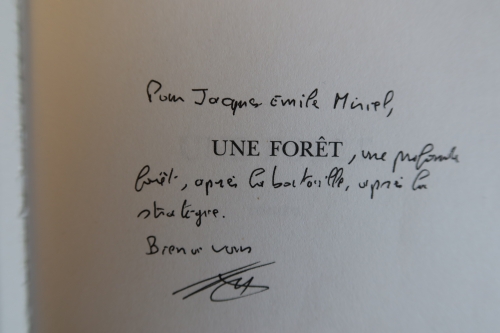 Pour Jacques Emile Miriel,
UNE FORÊT, une profonde
forêt, après la bataille, après la
stratégie.
Bien à vous